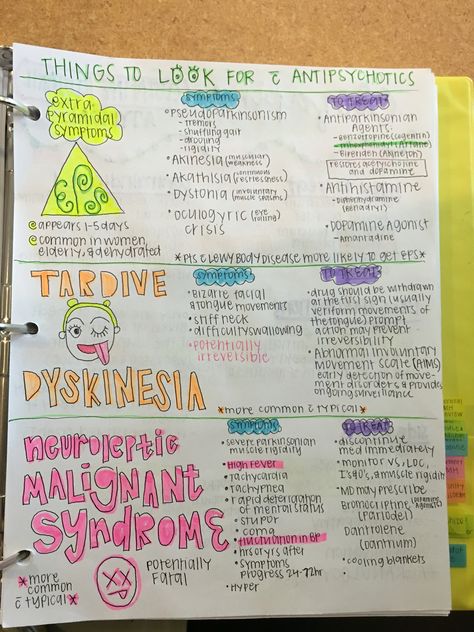 THINGS TO LOOK FOR c̄ ANTIPSYCHOTICS
extra-
pyramidal
symptoms
EPS
appears 1-5 days
common in women,
elderly, & dehydrated
SYMPTOMS
pseudoparkinsonism
- tremors
- shuffling gait
- drooling
- rigidity
Akinesia (muscular weakness)
Akathisia (continuous restlessness)
Dystonia (involuntary muscle movements)
oculogyric (eye rolling)
crisis
TO TREAT
Antiparkinsonian
Agents
- Benzotropine (cogentin)
- Trihexyphenidyl (ARTANE)
- Biperiden (Akineton)
restores acetylcholine
and dopamine
Antihistamine
- Diphenhydramine
(Benadryl)
Dopamine Agonist
- Amantadine
*Pts c̄ Lewy Body disease more likely to get EPS
TARDIVE
DYSKINESIA
SYMPTOMS
Bizarre facial
& tongue movements
stiff neck
difficulty swallowing
potentially
irreversible
TO TREAT
drug should be withdrawn
at the first sign (usually
veriform movements of
the tongue) prompt
action may prevent
irreversibility
Abnormal involuntary
movement scale (AIMS)
early detection of move-
ment disorders & provides
ongoing surveillance
*more common c̄ typical*
neuroleptic
MALIGNANT
SYNDROME
*more
common
c̄ typical*
potentially
Fatal
SYMPTOMS
severe parkinsonian
muscle rigidity
High Fever
Tachycardia
Tachypnea
rapid deterioration
of mental status
stupor
coma
fluctuation in BP
hrs or yrs after
symptoms
progress 24-72hr
Hyper
TO TREAT
discontinue
med immediately
monitor VS, LOC,
I's & O's, & muscle rigidity
MD may prescribe
Bromocriptine (dopamine agonists)
(Parlodel)
Dantrolene
(Dantrium)
cooling blankets